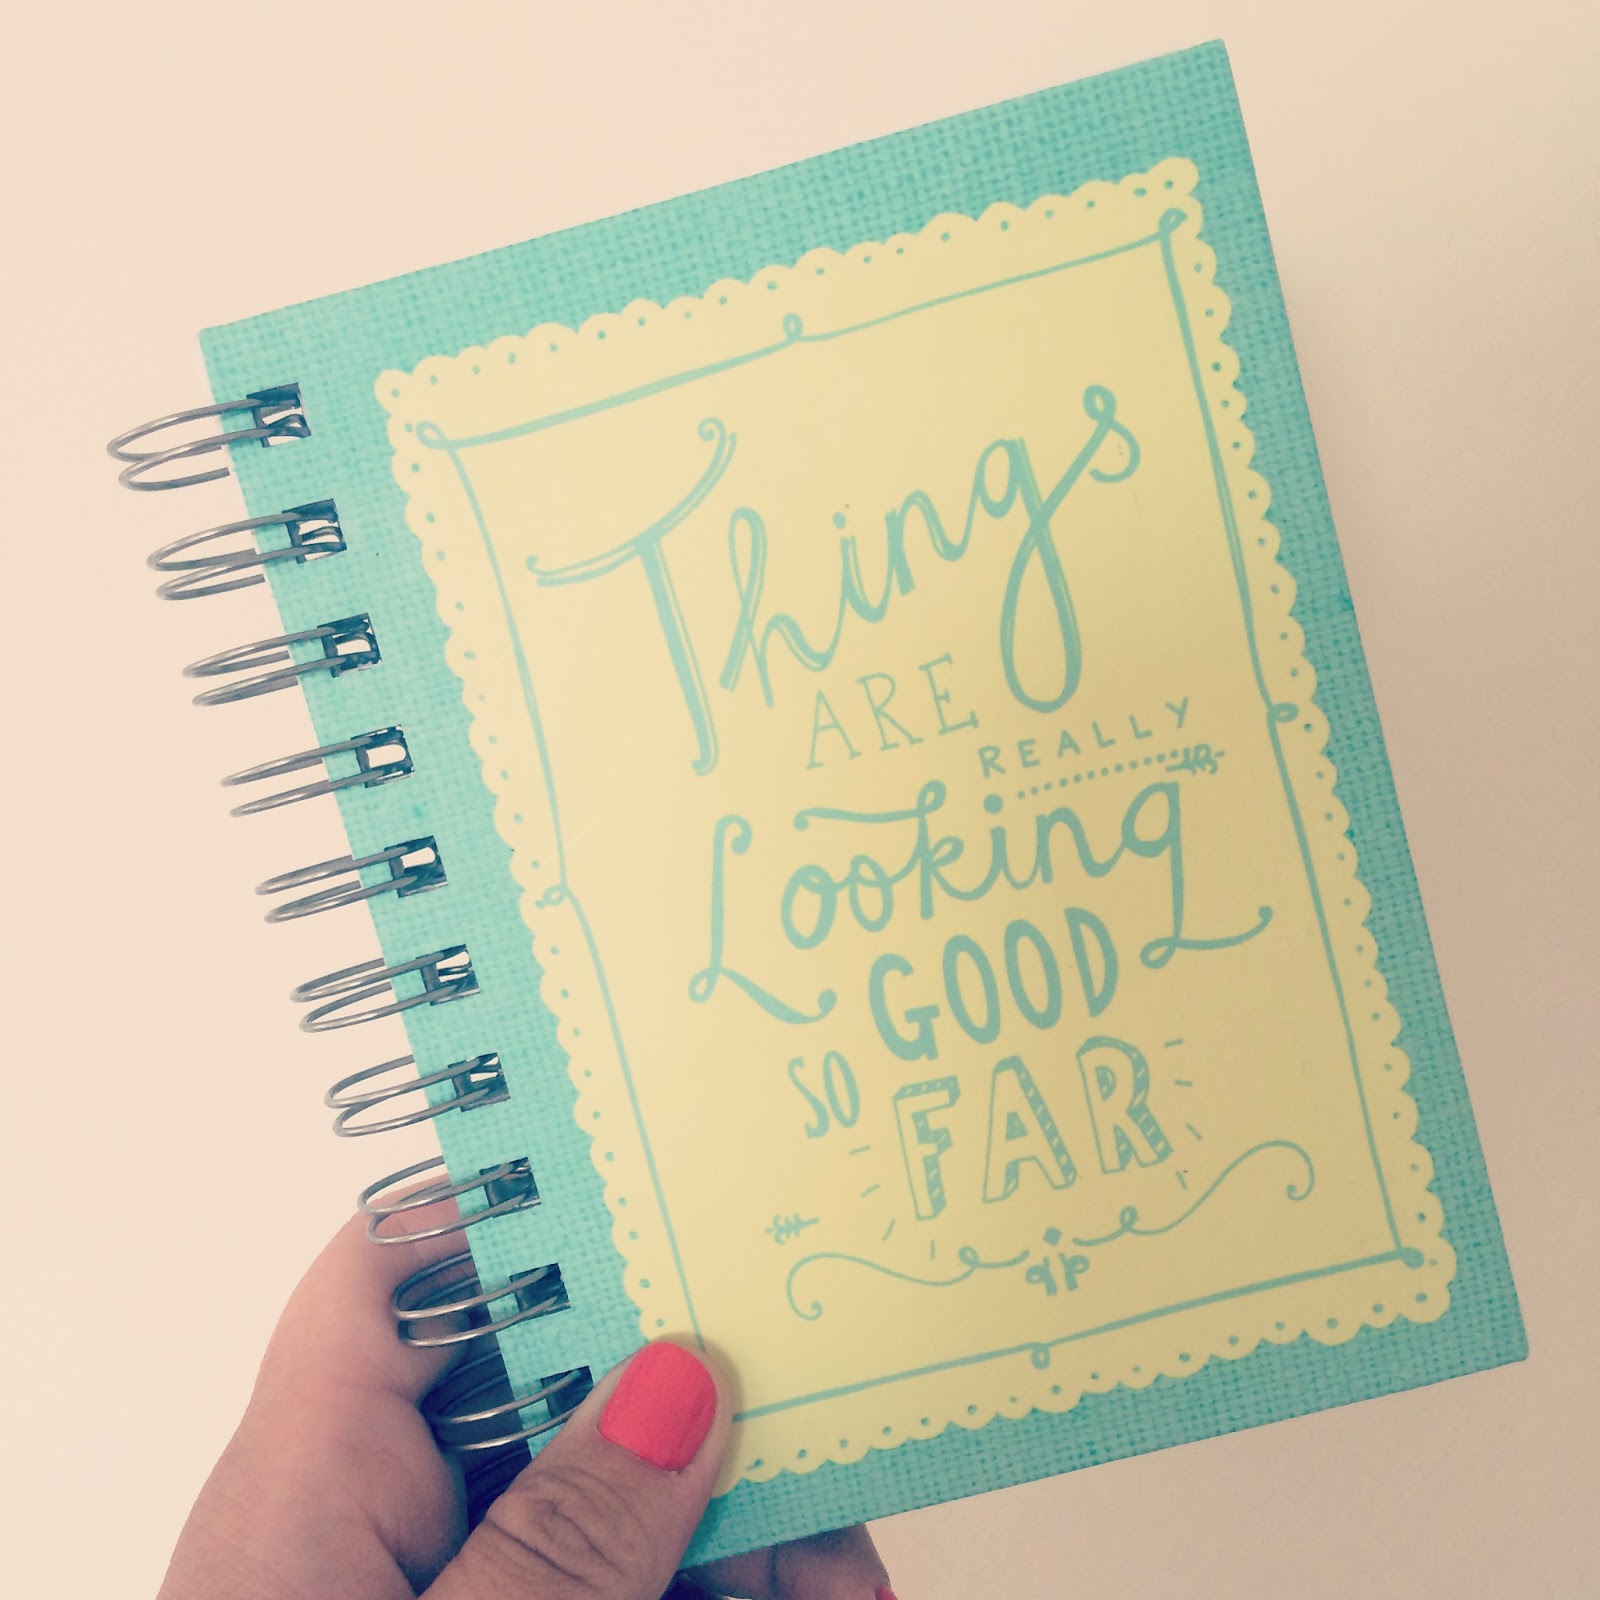 Things
ARE
REALLY
Looking
GOOD
SO FAR